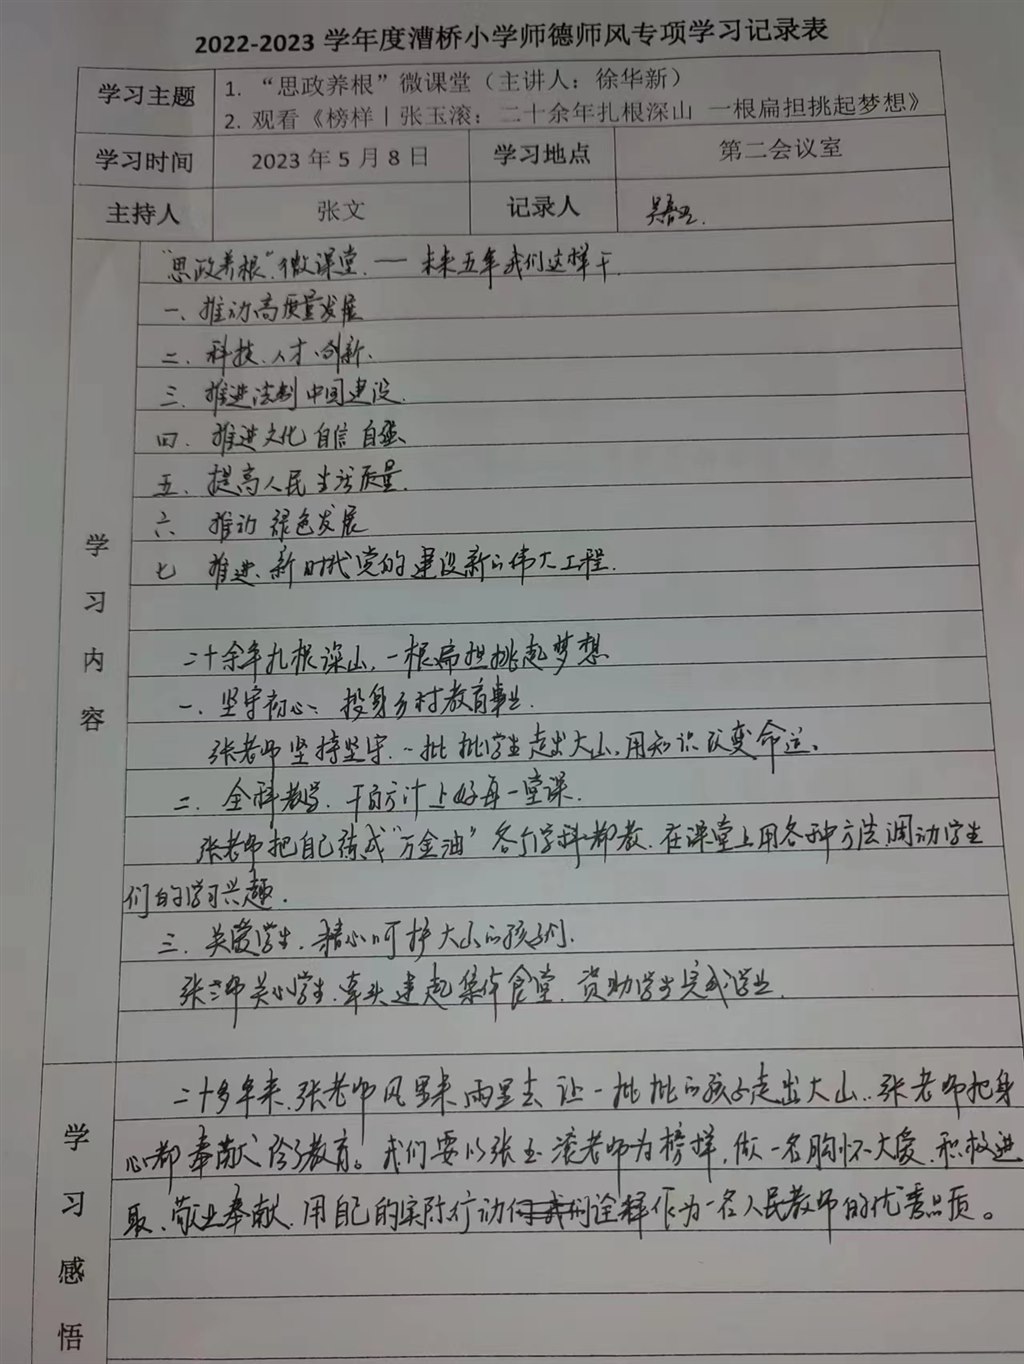 2022-2023 学年度漕桥小学师德师风专项学习记录表
学习主题
1. “思政养根”微课堂（主讲人：徐华新）
2. 观看《榜样丨张玉滚：二十余年扎根深山 一根扁担挑起梦想》
学习时间 2023 年 5 月 8 日 学习地点 第二会议室
主持人 张文 记录人
学习内容
“思政养根”微课堂. — 未来五年我们这样干.
一、推动高质量发展
二、科技、人才、创新.
三、推进法制中国建设.
四、推进文化自信自强、
五、提高人民生活质量.
六 推动绿色发展
七 推进、新时代党的建设新的伟大工程.
二十余年扎根深山, 一根扁担挑起梦想
一、坚守初心、投身乡村教育事业.
张老师坚持坚守, 一批批学生走出大山, 用知识改变命运。
二、全科教学, 千方百计上好每一堂课.
张老师把自己练成“万金油” 各个学科都教. 在课堂上用各种方法调动学生
们的学习兴趣.
三. 关爱学生. 精心呵护大山的孩子们.
张老师关心学生. 牵头建起集体食堂. 资助学生完成学业.
学习感悟
二十多年来, 张老师风里来雨里去 让一批批的孩子走出大山.. 张老师把身
心都奉献给了教育。我们要以张玉滚老师为榜样, 做一名胸怀大爱, 积极进
取、敬业奉献, 用自己的实际行动诠释作为一名人民教师的优秀品质。